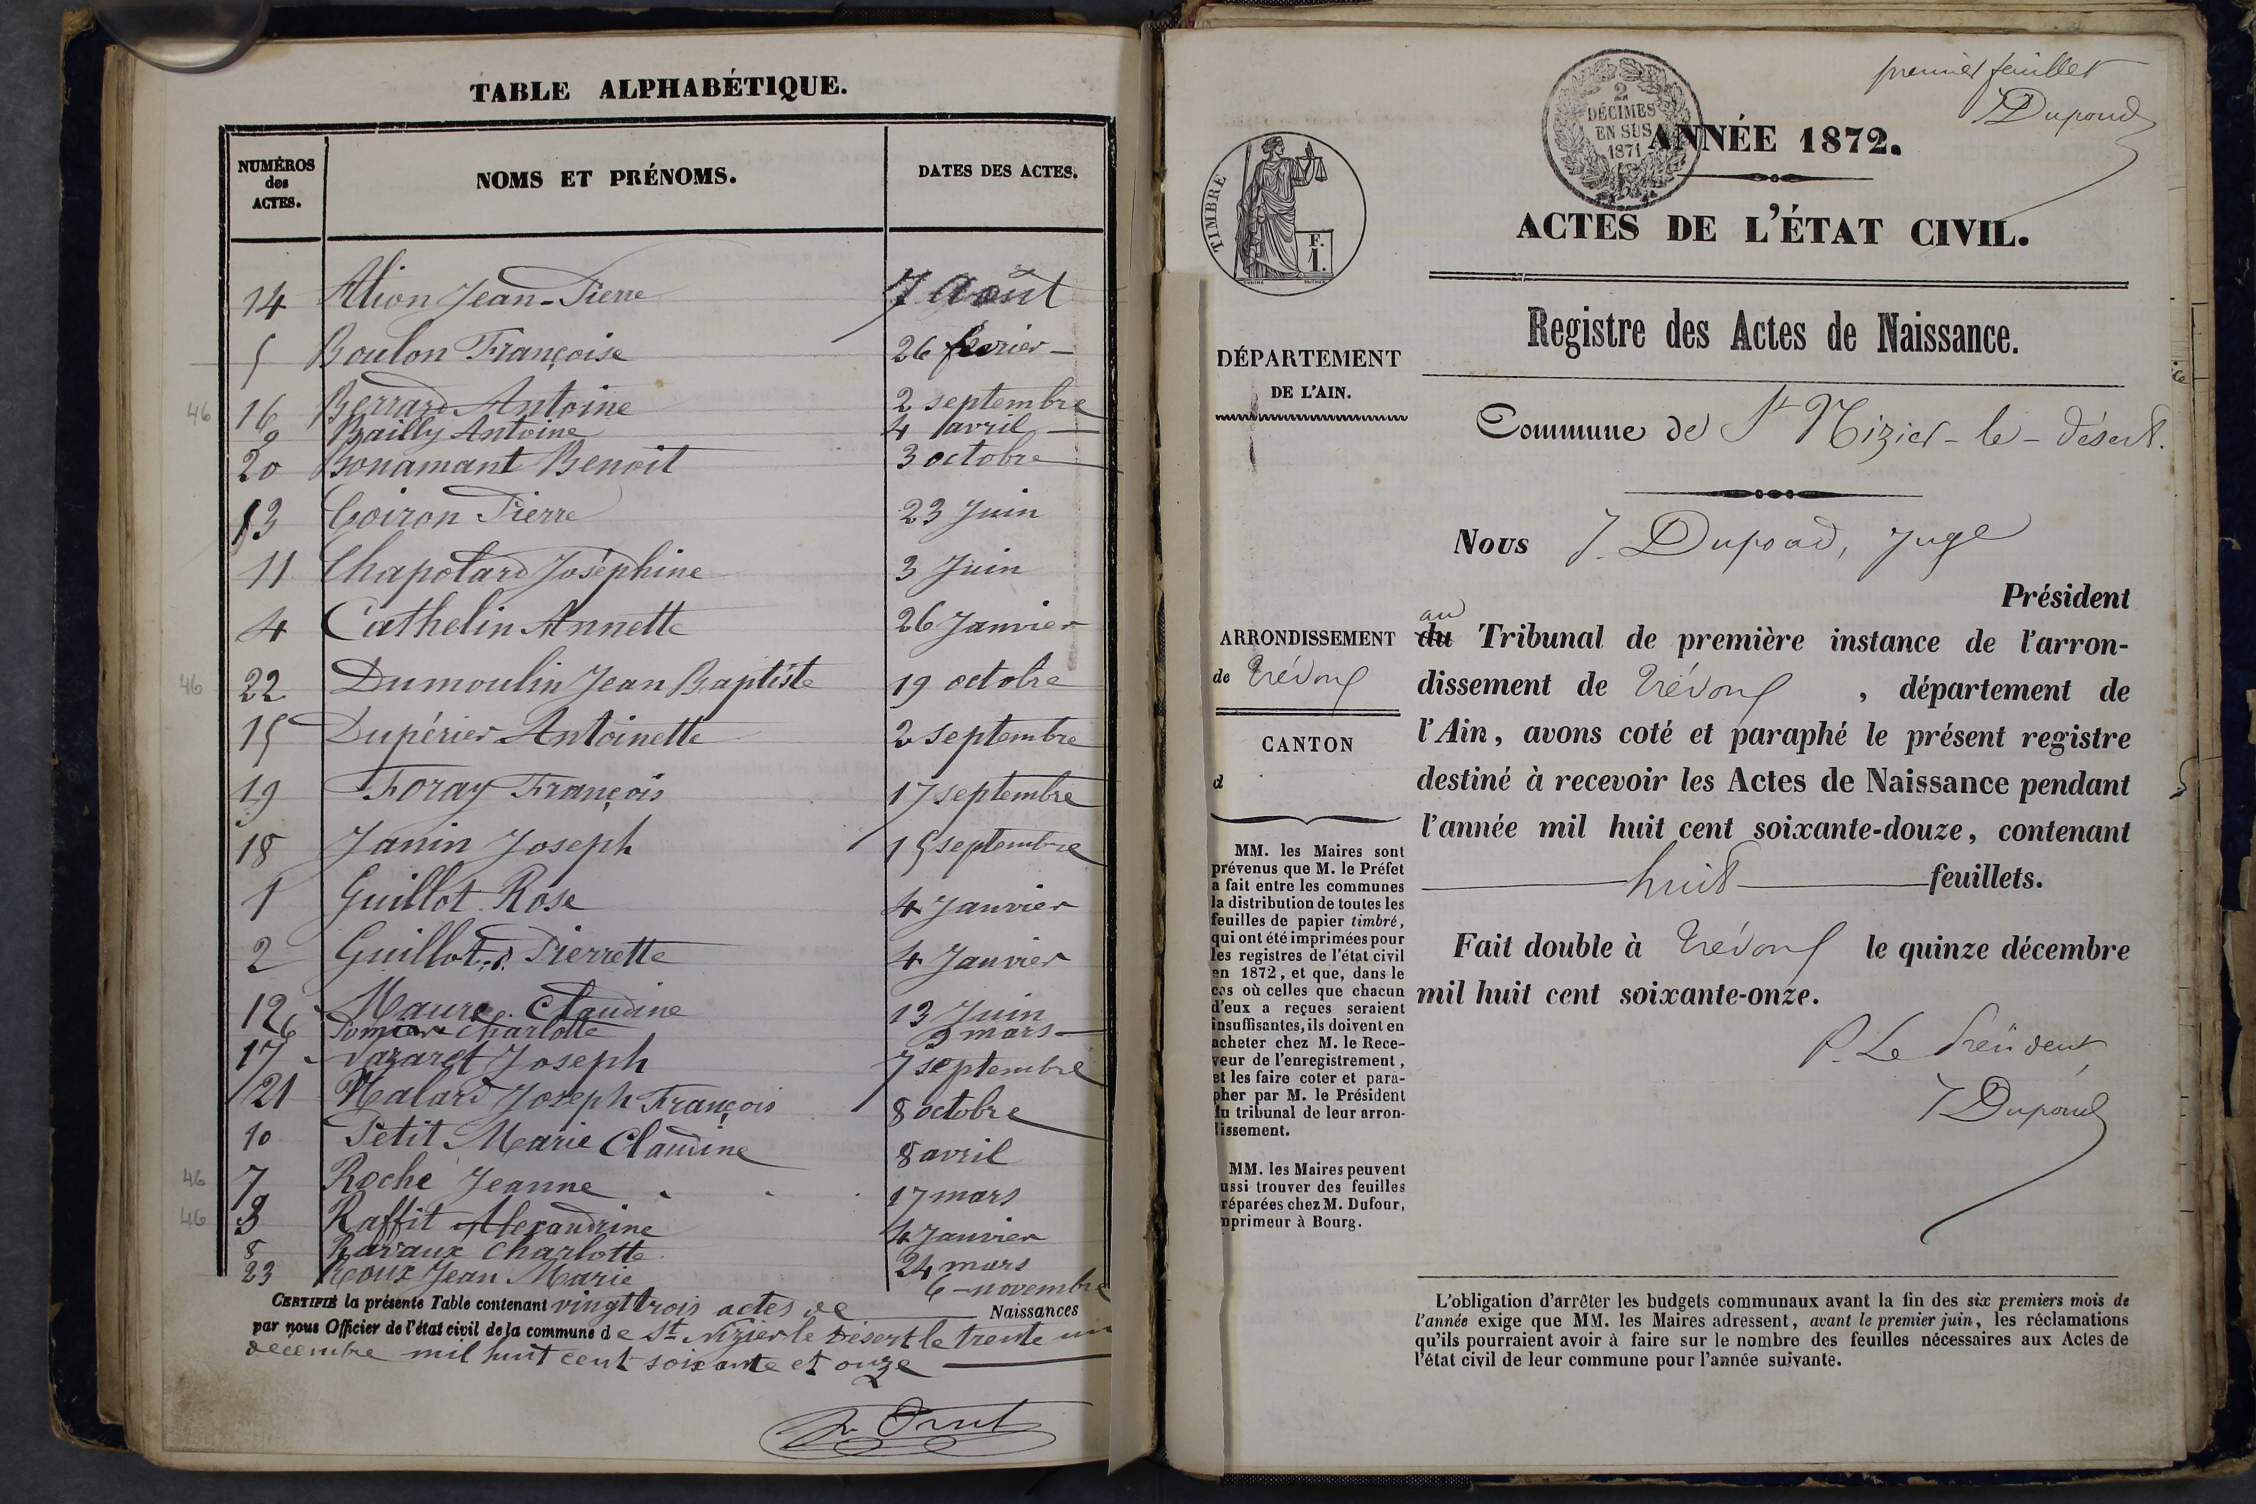 TABLE ALPHABÉTIQUE.
NUMÉROS des ACTES. NOMS ET PRÉNOMS. DATES DES ACTES.
14 Alion Jean-Pierre 7 Août
5 Boulon Françoise 26 fevrier
46 16 Berrard Antoine 2 septembre
9 Bailly Antoine 4 avril
20 Bonamant Benoit 3 octobre
13 Coiron Pierre 23 Juin
11 Chapolard Joséphine 3 Juin
4 Cathelin Annette 26 Janvier
46 22 Dumoulin Jean Baptiste 19 octobre
15 Dupérier Antoinette 2 septembre
19 Foray François 17 septembre
18 Janin Joseph 15 septembre
1 Guillot Rose 4 Janvier
2 Guillot Pierrette 4 Janvier
12 Maure Claudine 13 Juin
6 Charlotte 9 mars
17 Nazaret Joseph 7 septembre
21 Malard Joseph François 8 octobre
10 Petit Marie Claudine 8 avril
46 7 Roche Jeanne 17 mars
46 3 Raffit Alexandrine 4 Janvier
8 Ravaux Charlotte 24 mars
23 Roux Jean Marie 6 novembre
CERTIFIÉ la présente Table contenant vingt trois actes de Naissances
par nous Officier de l'état civil de la commune de St Nizier le Désert le trente un
decembre mil huit cent soixante et onze
premier feuillet
J Dupond
2
DÉCIMES
EN SUS
1871
ANNÉE 1872.
TIMBRE
F.
1.
ACTES DE L'ÉTAT CIVIL.
Registre des Actes de Naissance.
DÉPARTEMENT
DE L'AIN.
Commune de St Nizier-le-désert.
Nous J. Dupond, Juge
Président
au
ARRONDISSEMENT
de Trévoux
CANTON
d
du Tribunal de première instance de l'arron-
dissement de Trévoux, département de
l'Ain, avons coté et paraphé le présent registre
destiné à recevoir les Actes de Naissance pendant
l'année mil huit cent soixante-douze, contenant
huit feuillets.
Fait double à Trévoux le quinze décembre
mil huit cent soixante-onze.
P. Le Président
J Dupond
MM. les Maires sont
prévenus que M. le Préfet
a fait entre les communes
la distribution de toutes les
feuilles de papier timbré,
qui ont été imprimées pour
les registres de l'état civil
en 1872, et que, dans le
cas où celles que chacun
d'eux a reçues seraient
insuffisantes, ils doivent en
acheter chez M. le Rece-
veur de l'enregistrement,
et les faire coter et para-
pher par M. le Président
du tribunal de leur arron-
dissement.
MM. les Maires peuvent
ussi trouver des feuilles
réparées chez M. Dufour,
mprimeur à Bourg.
L'obligation d'arrêter les budgets communaux avant la fin des six premiers mois de
l'année exige que MM. les Maires adressent, avant le premier juin, les réclamations
qu'ils pourraient avoir à faire sur le nombre des feuilles nécessaires aux Actes de
l'état civil de leur commune pour l'année suivante.